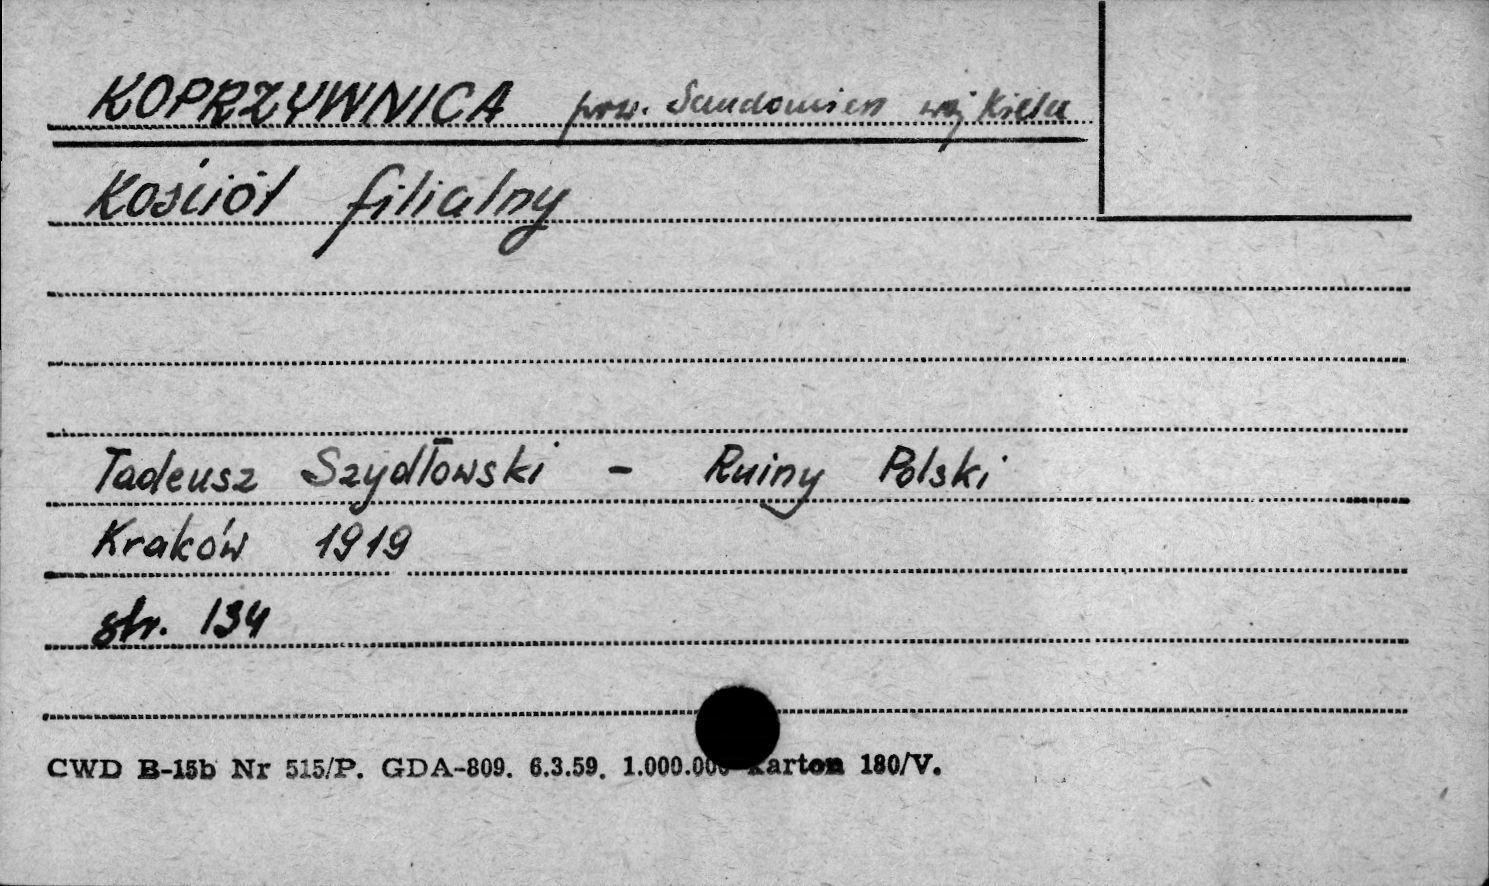 KOPRZYWNICA pow. Sandomierz woj Kielce
Kościół filialny
Tadeusz Szydłowski - Ruiny Polski
Kraków 1919
str. 134
CWD B-15b Nr 515/P. GDA-809. 6.3.59. 1.000.000 Karton 180/V.